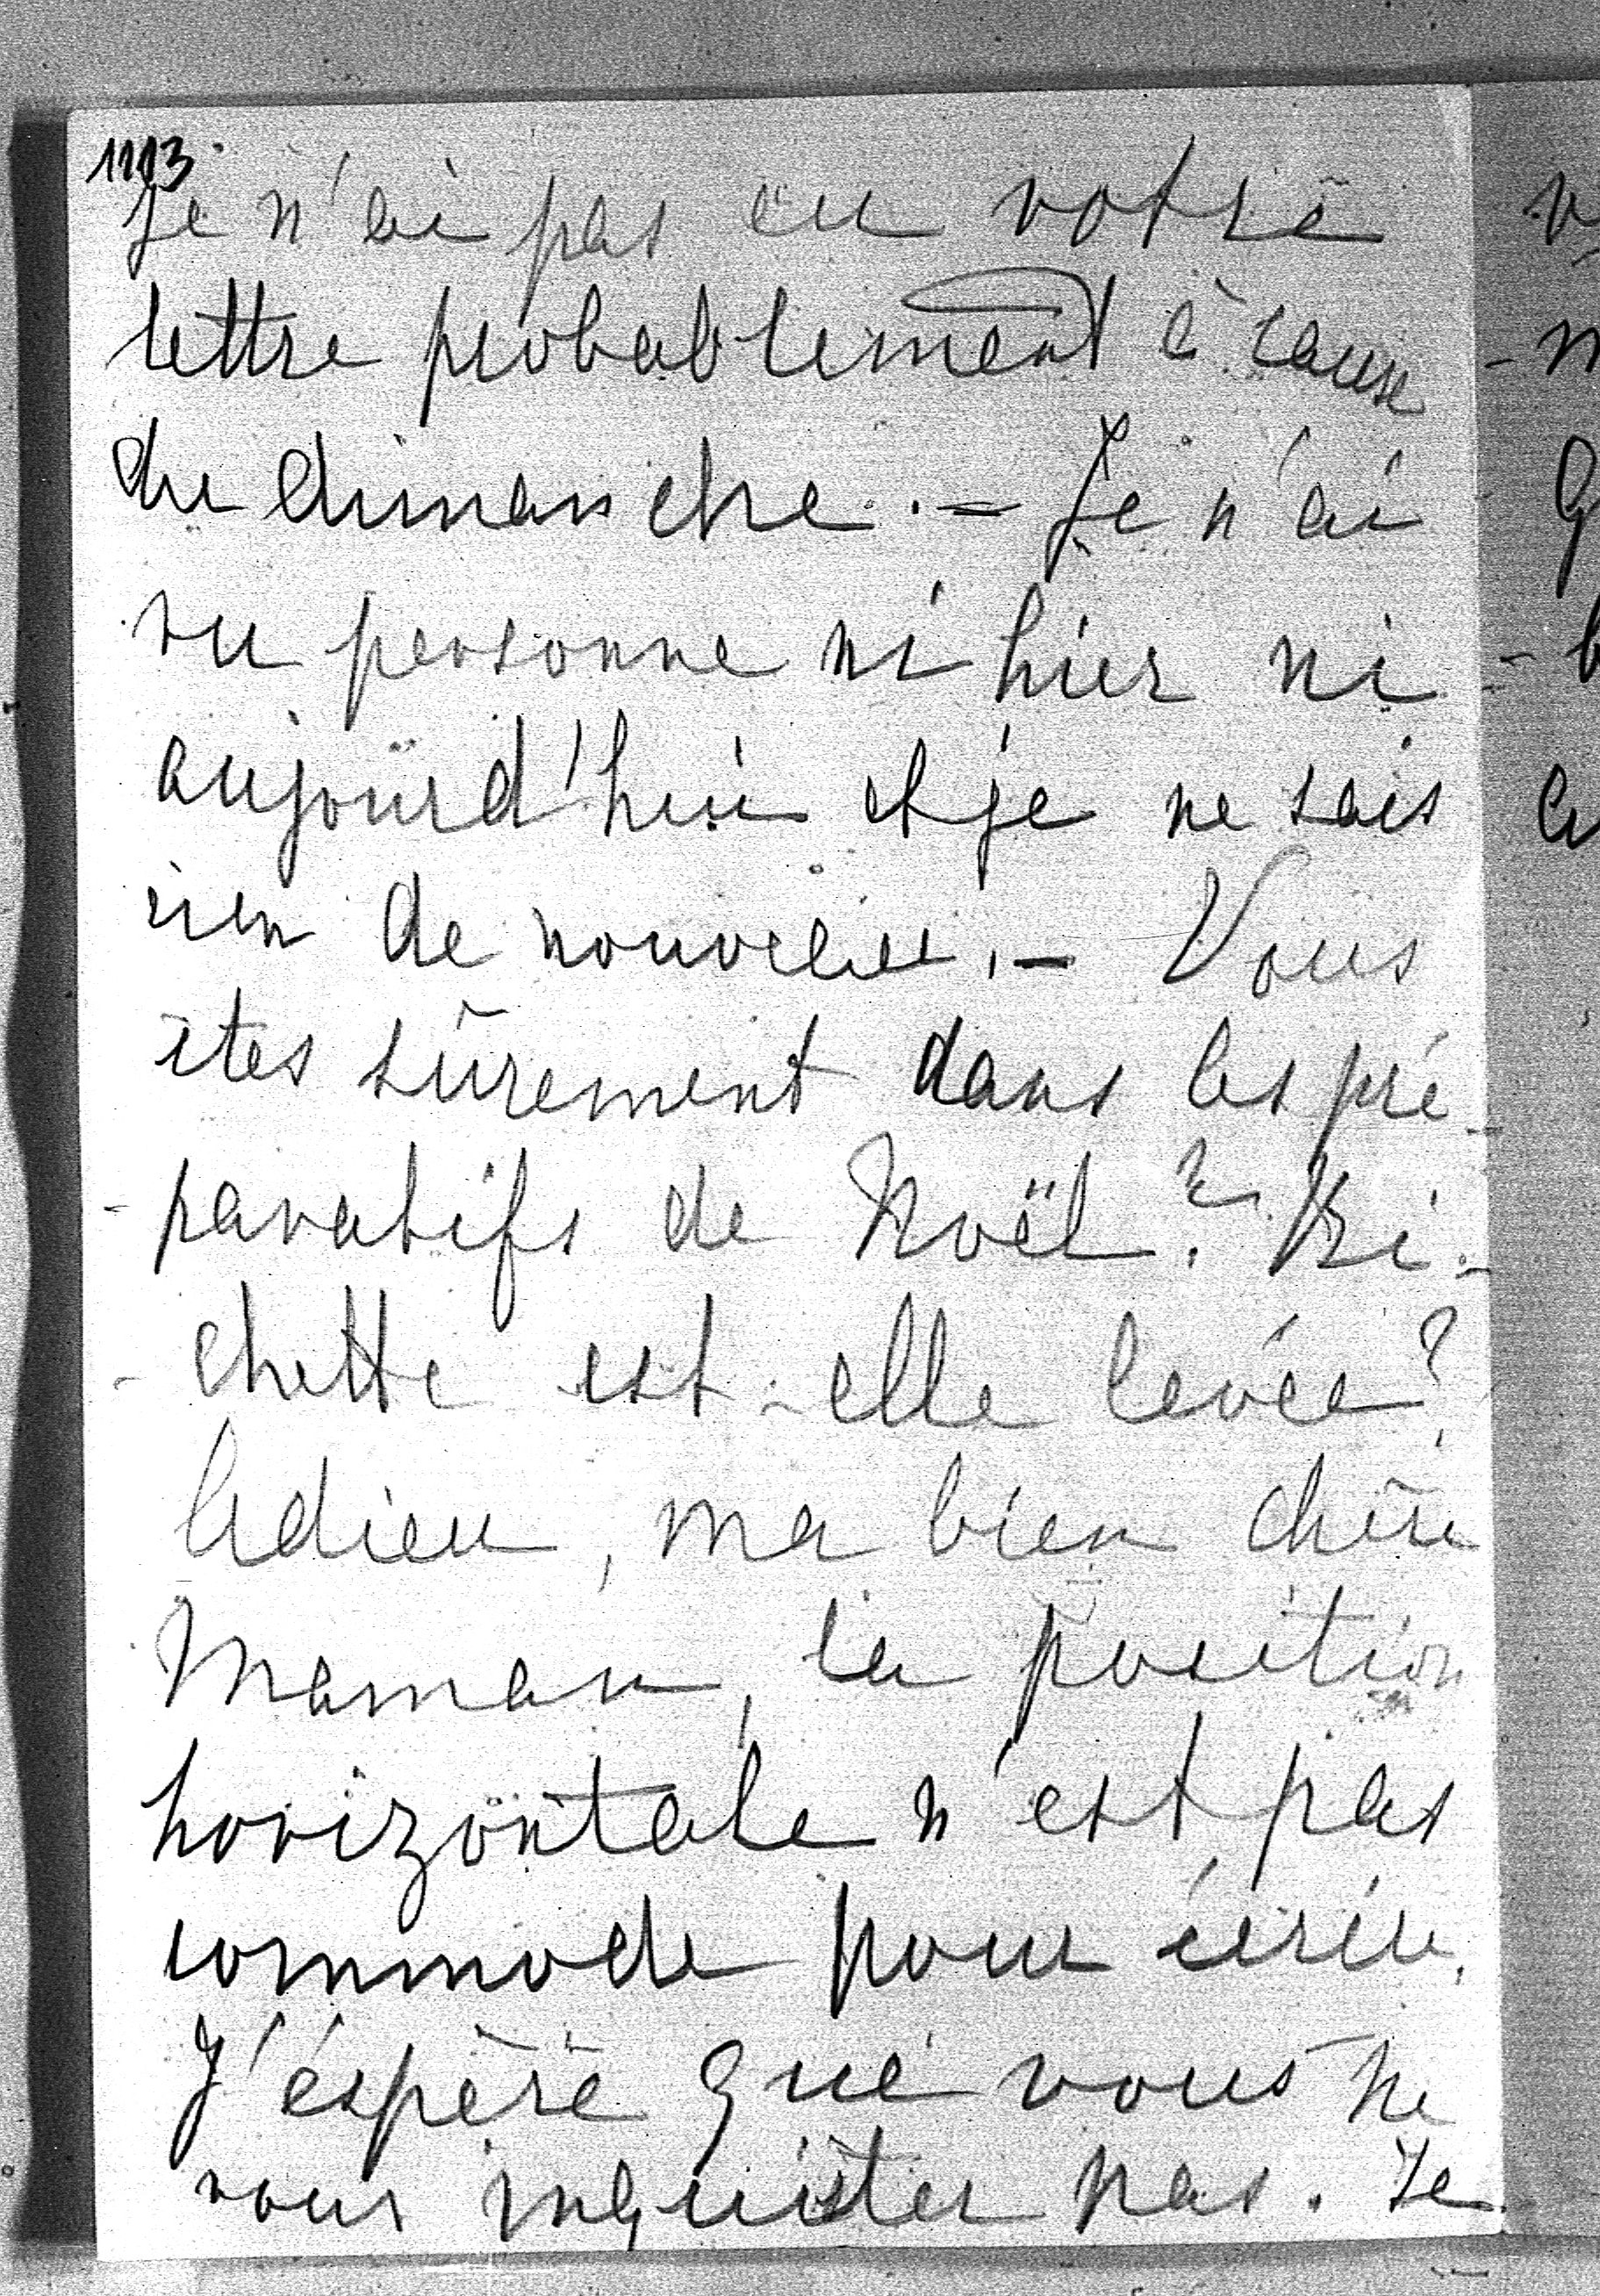 1113
Je n'ai pas eu votre
lettre probablement à cause
du dimanche. — Je n'ai
vu personne ni hier ni
aujourd'hui et je ne sais
rien de nouveau. — Vous
êtes sûrement dans les pré-
-paratifs de Noël? Bi-
-chette est-elle levée?
Adieu, ma bien chère
Maman, la position
horizontale n'est pas
commode pour écrire.
J'éspère que vous ne
vous inquieter pas. Je